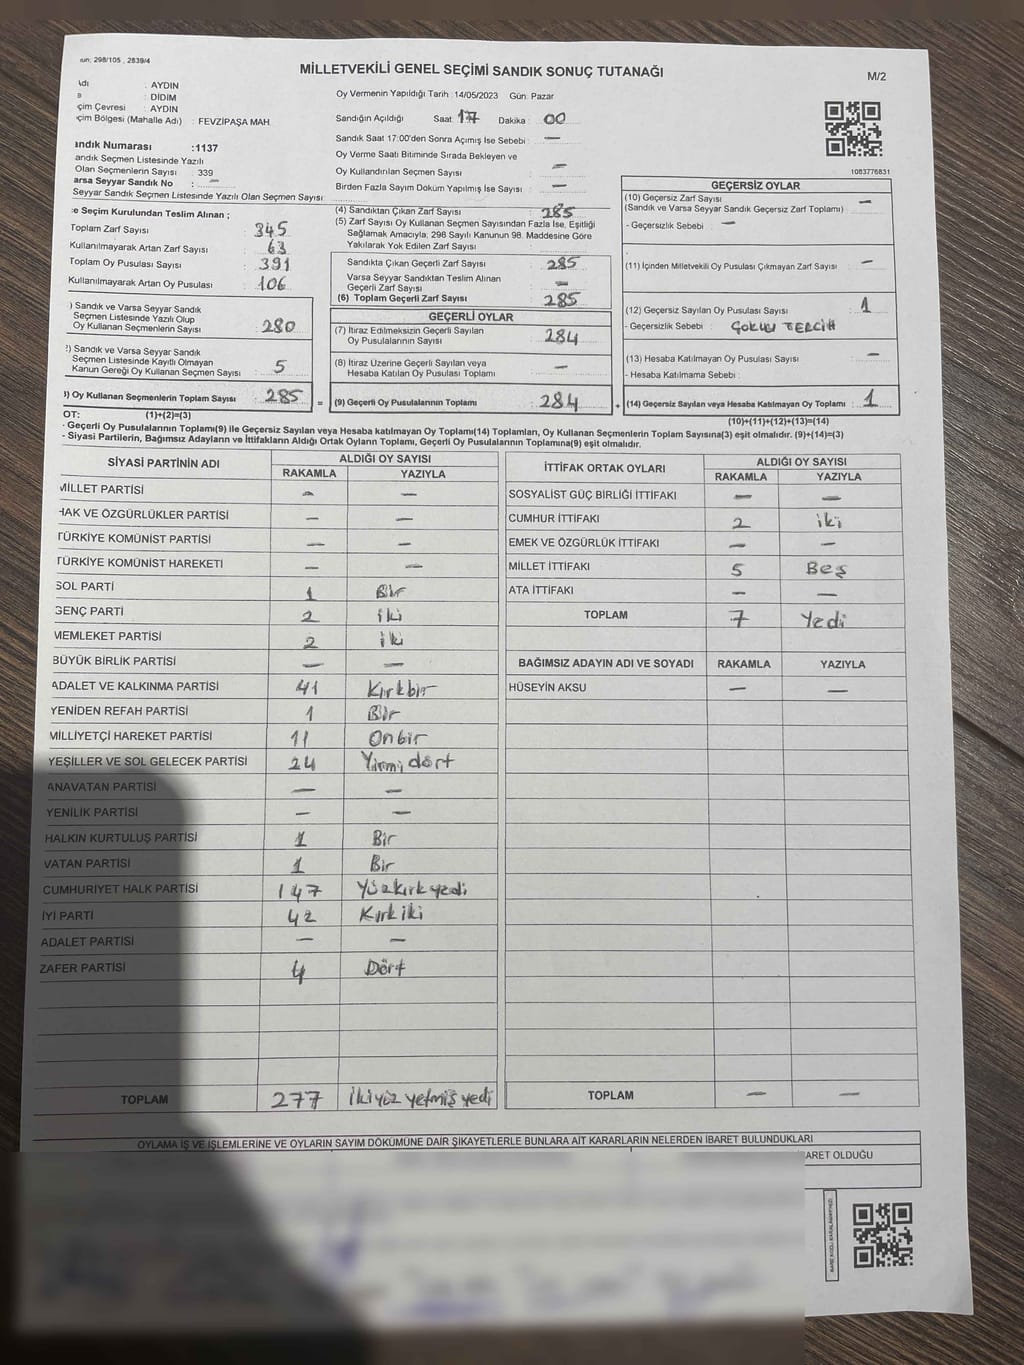 298/105 , 2839/4
MİLLETVEKİLİ GENEL SEÇİMİ SANDIK SONUÇ TUTANAĞI
M/2
: AYDIN
: DİDİM
çim Çevresi : AYDIN
çim Bölgesi (Mahalle Adı) : FEVZİPAŞA MAH.
Oy Vermenin Yapıldığı Tarih :14/05/2023 Gün: Pazar
Sandığın Açıldığı Saat : 17 Dakika : 00
Sandık Saat 17:00'den Sonra Açımış İse Sebebi : —
Oy Verme Saati Bitiminde Sırada Bekleyen ve
Oy Kullandırılan Seçmen Sayısı : —
Birden Fazla Sayım Döküm Yapılmış İse Sayısı : —
andık Numarası :1137
andık Seçmen Listesinde Yazılı
Olan Seçmenlerin Sayısı : 339
arsa Seyyar Sandık No : —
Seyyar Sandık Seçmen Listesinde Yazılı Olan Seçmen Sayısı :
1083776831
e Seçim Kurulundan Teslim Alınan ;
Toplam Zarf Sayısı : 345
Kullanılmayarak Artan Zarf Sayısı : 63
Toplam Oy Pusulası Sayısı : 391
Kullanılmayarak Artan Oy Pusulası : 106
) Sandık ve Varsa Seyyar Sandık
Seçmen Listesinde Yazılı Olup
Oy Kullanan Seçmenlerin Sayısı : 280
2) Sandık ve Varsa Seyyar Sandık
Seçmen Listesinde Kayıtlı Olmayan
Kanun Gereği Oy Kullanan Seçmen Sayısı : 5
3) Oy Kullanan Seçmenlerin Toplam Sayısı : 285
(4) Sandıktan Çıkan Zarf Sayısı : 285
(5) Zarf Sayısı Oy Kullanan Seçmen Sayısından Fazla İse, Eşitliği
Sağlamak Amacıyla, 298 Sayılı Kanunun 98. Maddesine Göre
Yakılarak Yok Edilen Zarf Sayısı :
Sandıkta Çıkan Geçerli Zarf Sayısı : 285
Varsa Seyyar Sandıktan Teslim Alınan
Geçerli Zarf Sayısı : —
(6) Toplam Geçerli Zarf Sayısı : 285
GEÇERLİ OYLAR
(7) İtiraz Edilmeksizin Geçerli Sayılan
Oy Pusulalarının Sayısı : 284
(8) İtiraz Üzerine Geçerli Sayılan veya
Hesaba Katılan Oy Pusulası Toplamı : —
= (9) Geçerli Oy Pusulalarının Toplamı : 284
GEÇERSİZ OYLAR
(10) Geçersiz Zarf Sayısı : —
(Sandık ve Varsa Seyyar Sandık Geçersiz Zarf Toplamı)
- Geçersizlik Sebebi : —
(11) İçinden Milletvekili Oy Pusulası Çıkmayan Zarf Sayısı : —
(12) Geçersiz Sayılan Oy Pusulası Sayısı : 1
- Geçersizlik Sebebi : ÇOKLU TERCİH
(13) Hesaba Katılmayan Oy Pusulası Sayısı : —
- Hesaba Katılmama Sebebi :
+ (14) Geçersiz Sayılan veya Hesaba Katılmayan Oy Toplamı : 1
OT: (1)+(2)=(3)
(10)+(11)+(12)+(13)=(14)
- Geçerli Oy Pusulalarının Toplamı(9) ile Geçersiz Sayılan veya Hesaba Katılmayan Oy Toplamı(14) Toplamları, Oy Kullanan Seçmenlerin Toplam Sayısına(3) eşit olmalıdır. (9)+(14)=(3)
- Siyasi Partilerin, Bağımsız Adayların ve İttifakların Aldığı Ortak Oyların Toplamı, Geçerli Oy Pusulalarının Toplamına(9) eşit olmalıdır.
SİYASİ PARTİNİN ADI ALDIĞI OY SAYISI
RAKAMLA YAZIYLA
MİLLET PARTİSİ — —
HAK VE ÖZGÜRLÜKLER PARTİSİ — —
TÜRKİYE KOMÜNİST PARTİSİ — —
TÜRKİYE KOMÜNİST HAREKETİ — —
SOL PARTİ 1 Bir
GENÇ PARTİ 2 iki
MEMLEKET PARTİSİ 2 iki
BÜYÜK BİRLİK PARTİSİ — —
ADALET VE KALKINMA PARTİSİ 41 Kırkbir
YENİDEN REFAH PARTİSİ 1 Bir
MİLLİYETÇİ HAREKET PARTİSİ 11 Onbir
YEŞİLLER VE SOL GELECEK PARTİSİ 24 Yirmi dört
ANAVATAN PARTİSİ — —
YENİLİK PARTİSİ — —
HALKIN KURTULUŞ PARTİSİ 1 Bir
VATAN PARTİSİ 1 Bir
CUMHURİYET HALK PARTİSİ 147 Yüzkırkyedi
İYİ PARTİ 42 Kırkiki
ADALET PARTİSİ — —
ZAFER PARTİSİ 4 Dört
TOPLAM 277 İkiyüz yetmiş yedi
İTTİFAK ORTAK OYLARI ALDIĞI OY SAYISI
RAKAMLA YAZIYLA
SOSYALİST GÜÇ BİRLİĞİ İTTİFAKI — —
CUMHUR İTTİFAKI 2 iki
EMEK VE ÖZGÜRLÜK İTTİFAKI — —
MİLLET İTTİFAKI 5 Beş
ATA İTTİFAKI — —
TOPLAM 7 Yedi
BAĞIMSIZ ADAYIN ADI VE SOYADI RAKAMLA YAZIYLA
HÜSEYİN AKSU — —
TOPLAM — —
OYLAMA İŞ VE İŞLEMLERİNE VE OYLARIN SAYIM DÖKÜMÜNE DAİR ŞİKAYETLERLE BUNLARA AİT KARARLARIN NELERDEN İBARET BULUNDUKLARI
ARET OLDUĞU